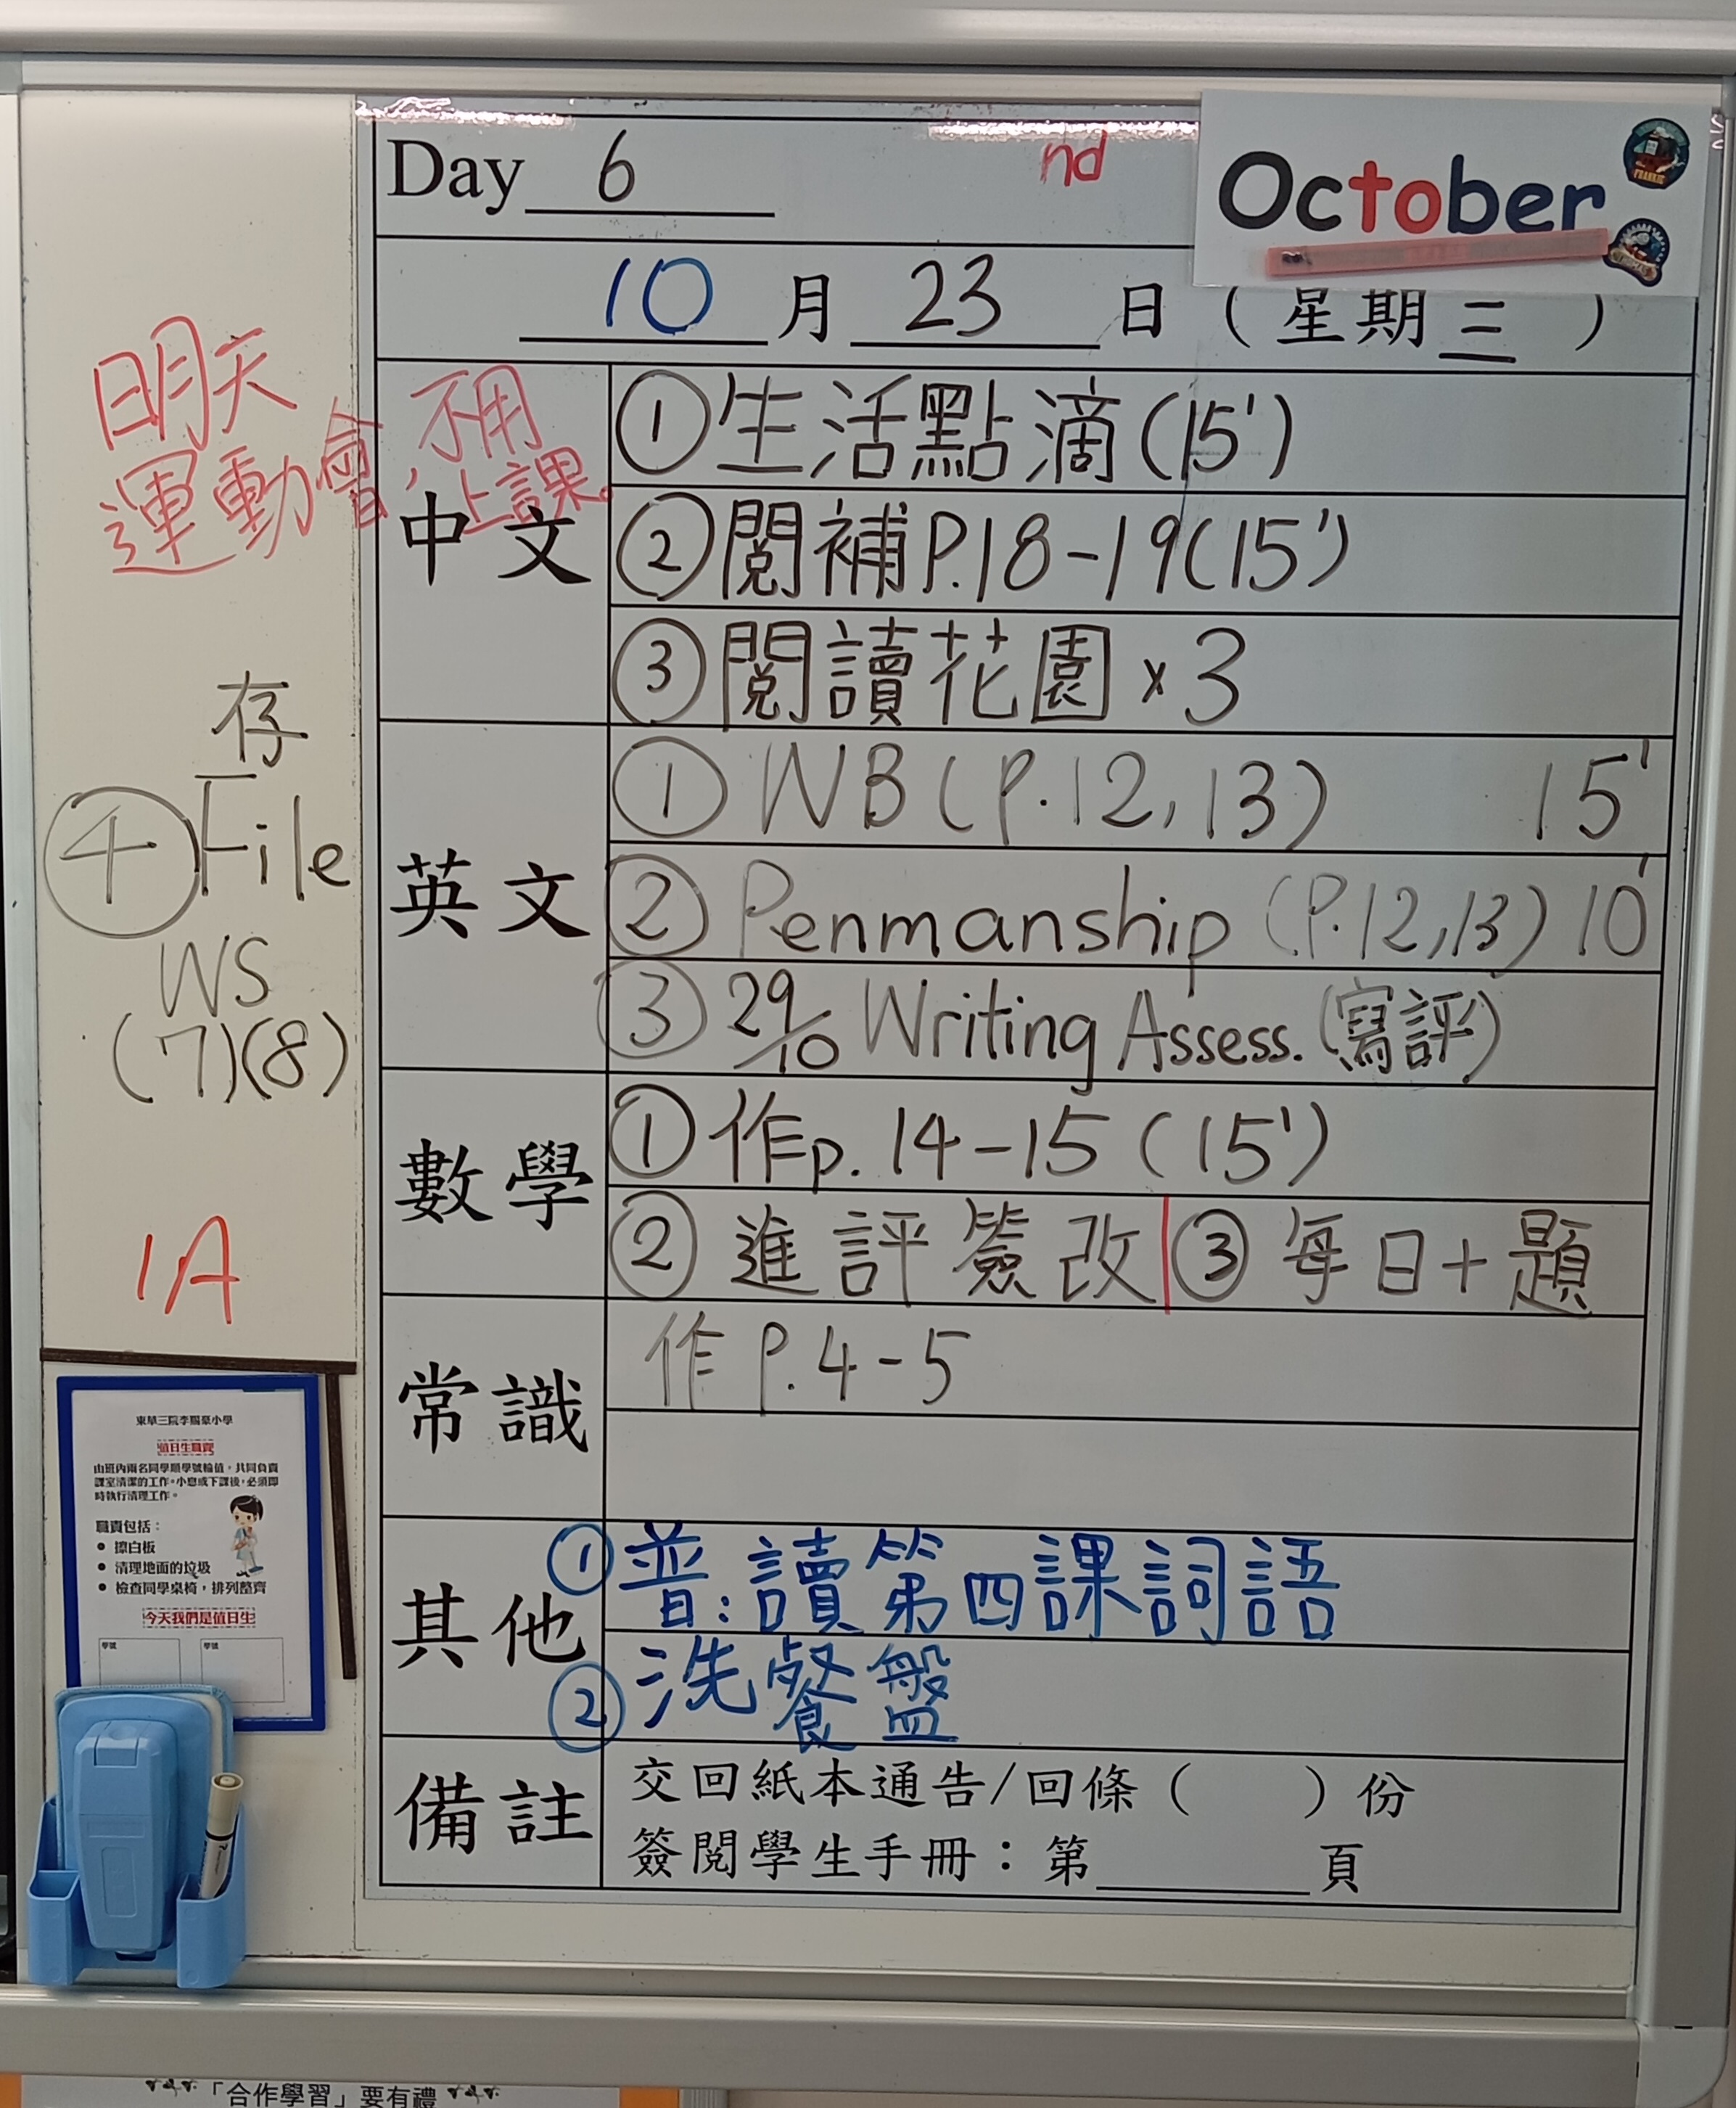 Day 6
nd
October
10 月 23 日 ( 星期 三 )
明天
運動會，不用
上課。
中文
① 生活點滴 (15')
② 閱補 P.18-19 (15')
③ 閱讀花園 x 3
英文
① WB (P.12, 13) 15'
② Penmanship (P.12, 13) 10'
③ 29/10 Writing Assess. (寫評)
存
④ File
WS
(7)(8)
數學
① 作p. 14-15 (15')
② 進評簽改 | ③ 每日十題
1A
常識
作 P.4-5
其他
① 普：讀第四課詞語
② 洗餐盤
備註
交回紙本通告/回條 ( ) 份
簽閱學生手冊：第 頁
東華三院李賜豪小學
值日生職責
由班內兩名同學順學號輪值，共同負責
課室清潔的工作。小息或下課後，必須即
時執行清理工作。
職責包括：
• 擦白板
• 清理地面的垃圾
• 檢查同學桌椅，排列整齊
今天我們是值日生
學號 學號
「合作學習」要有禮